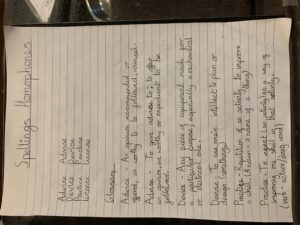 Spellings Homophones
Advice Advise
Device Devise
Practice Practise
Licence License
Glossary
Advice - An opinion recommended or
offered, as worthy to be followed; counsel.
Advise - To give advice to; to offer
as worthy or expedient to be
followed.
Device - Any piece of equipment made for
particular purpose, especially a mechanical
or electrical one.
Devise - To use one's intellect to plan or
design (something).
Practice - Repetition of an activity to improve
a skill. (A noun - A name of a thing)
Practise - To repeat (an activity) as a way of
improving one's skill in that activity.
(verb - action/doing word)